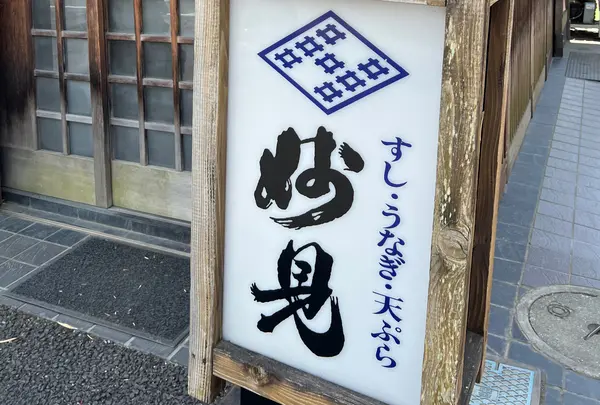 すし・うなぎ・天ぷら
妙見